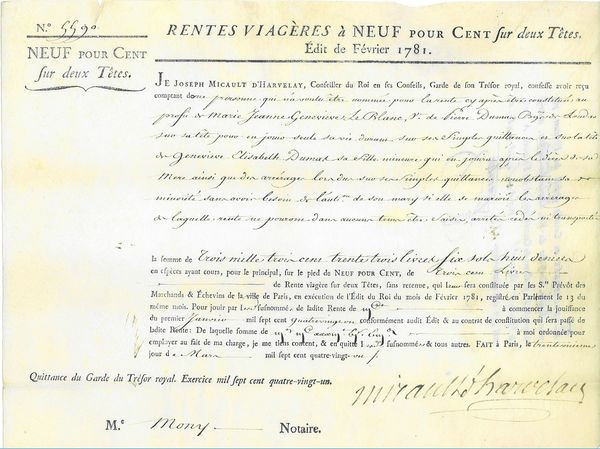 N.º 5590
RENTES VIAGÈRES à NEUF POUR CENT sur deux Têtes.
Édit de Février 1781.
NEUF POUR CENT
sur deux Têtes.
JE JOSEPH MICAULT D'HARVELAY, Conseiller du Roi en ses Conseils, Garde de son Trésor royal, confesse avoir reçu
comptant de personne qui n'a voulu être nommée pour la rente cy après être constituée au
profit de Marie Jeanne Genevieve Le Blanc, Vᵉ de Pierre Dumas
sur sa tête pour en jouir seule sa vie durant sur ses simples quittances et sur la tête
de Genevieve Elisabeth Dumas sa fille mineure qui en jouira après le décès de sa
Mere ainsi que des arrérages lors dus sur ses simples quittances nonobstant sa
minorité sans avoir besoin de l'autᵒⁿ de son mary si elle se marioit les arrérages
de laquelle rente ne pourront dans aucun tems être saisis, arrêtés cédés ni transportés
la somme de Trois mille trois cent trente trois livres six sols huit deniers
en espèces ayant cours, pour le principal, sur le pied de NEUF POUR CENT, de trois cent Livres
de Rente viagère sur deux Têtes, sans retenue, qui leur sera constituée par les S.rs Prévôt des
Marchands & Échevins de la ville de Paris, en exécution de l'Édit du Roi du mois de Février 1781, registré en Parlement le 13 du
même mois. Pour jouir par les susnommés de ladite Rente de à commencer la jouissance
du premier Janvier mil sept cent quatrevingt un conformément audit Édit & au contrat de constitution qui sera passé de
ladite Rente: De laquelle somme de à moi ordonnée pour
employer au fait de ma charge, je me tiens content, & en quitte les susnommés & tous autres. FAIT à PARIS, le trenteunieme
jour de Mars mil sept cent quatre-vingt-un
Quittance du Garde du Trésor royal. Exercice mil sept cent quatre-vingt-un.
micault d'harvelay
M.e Mony Notaire.